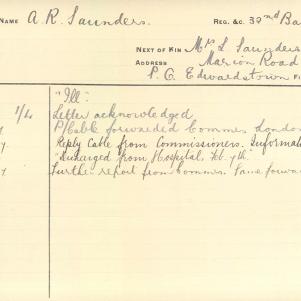 NAME A. R. Saunders. REG. &C. 32nd Ba
NEXT OF KIN Mrs L. Saunders
ADDRESS Marion Road
P. O. Edwardstown
"Ill"
Letter acknowledged
P/Cable forwarded Commrs London
Reply Cable from Commissioners. Informat
"Discharged from Hospital, Feb. 7th."
Further report from Commrs. Same forwar